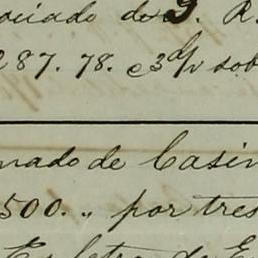 ociado de S. R.
287. 78. e 3% sob
nado de Casim
500. „ por tres
Es letra de E